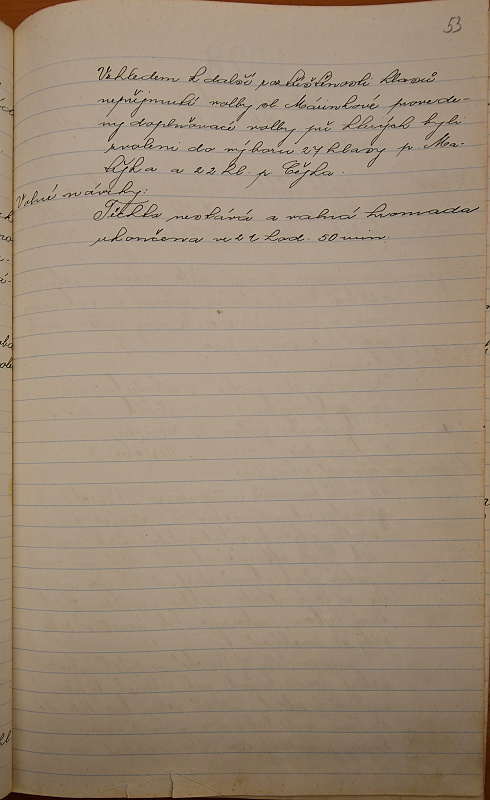 53
Vzhledem k další roztříštěnosti hlasů
nepřijmutí volby sl. Mářinkové provede-
ny doplňovací volby při kterých byli
zvoleni do výboru 27 hlasy p. Ma-
lýka a 22 hl. p. Čejka.
Volné návrhy:
a valná hromada
ukončena ve 21 hod. 50 min.